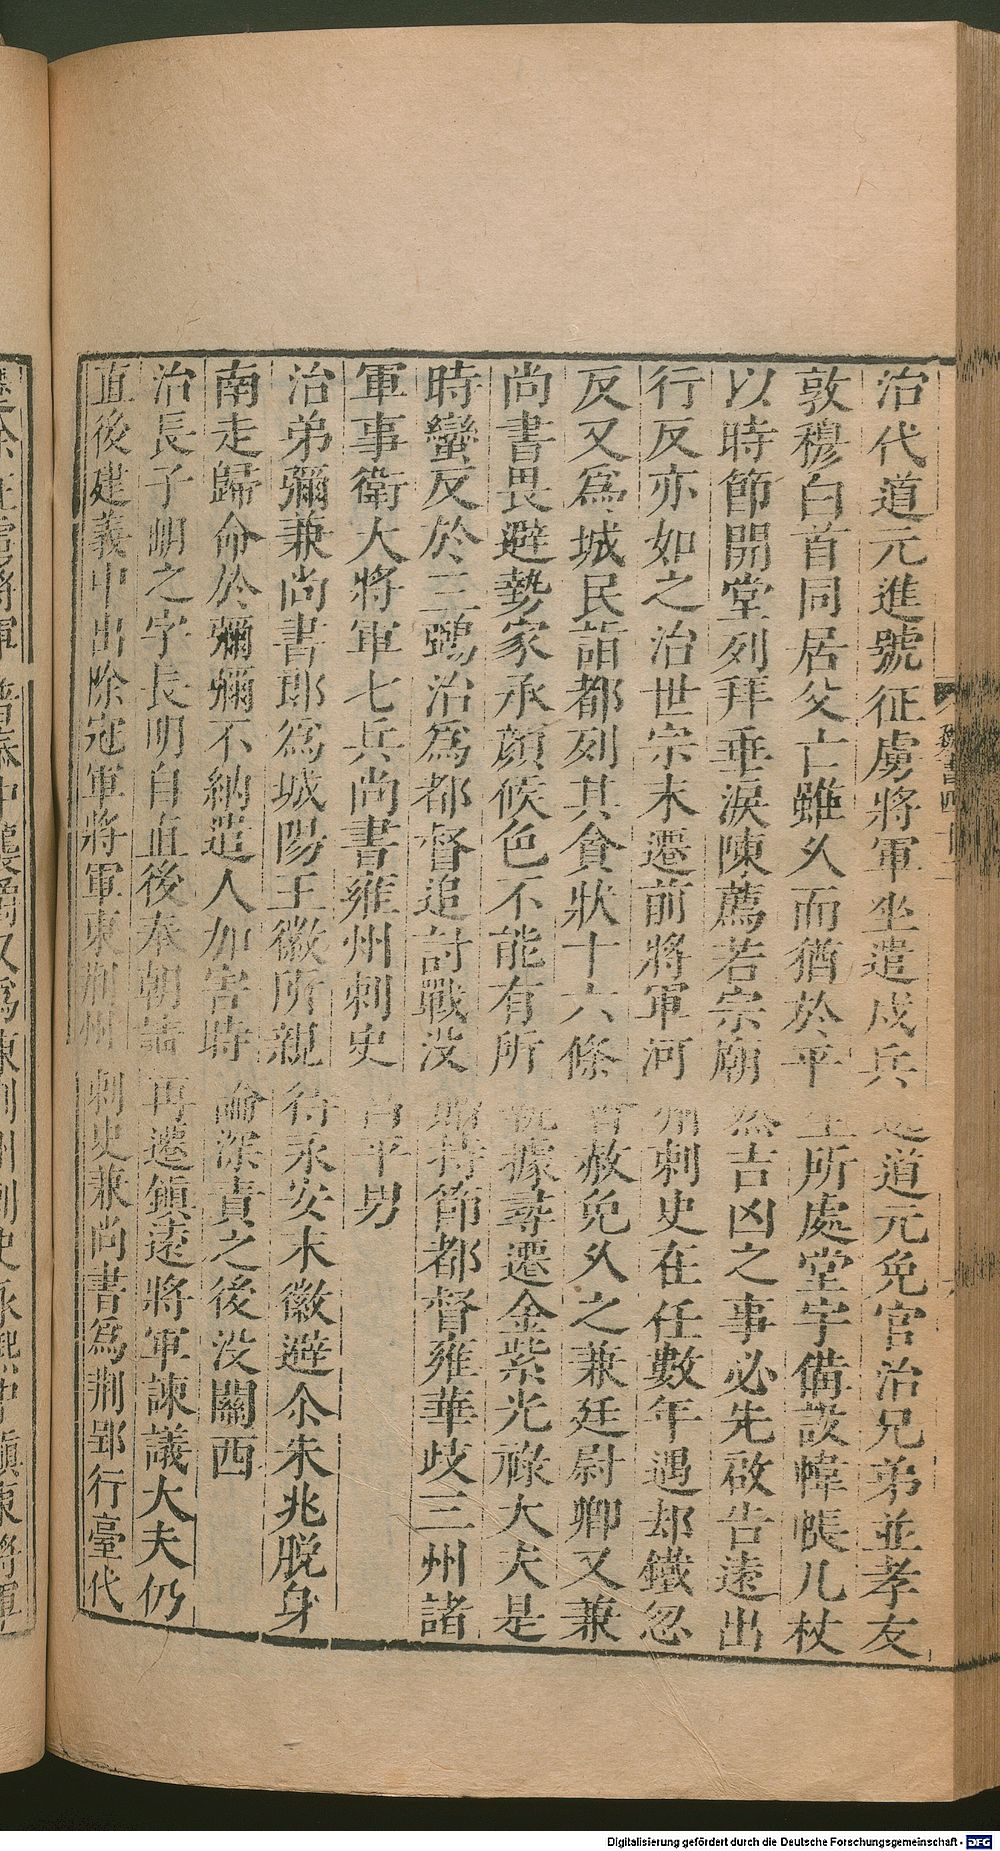 治代道元進號征虜將軍坐遣戍兵送道元免官治兄弟並孝友
敦穆白首同居父亡雖久而猶於平生所處堂宇備設幃帳几杖
以時節開堂列拜垂淚陳薦若宗廟然吉凶之事必先啟告遠出
行反亦如之治世宗末遷前將軍河州刺史在任數年遇却鐵忽
反又爲城民詣都列其貪狀十六條會赦免久之兼廷尉卿又兼
尚書畏避勢家承顔候色不能有所執據尋遷金紫光祿大夫是
時蠻反於三鵶治爲都督追討戰没 持節都督雍華歧三州諸
軍事衛大將軍七兵尚書雍州刺史昌平男
治弟彌兼尚書郎爲城陽王徽所親待永安末徽避尒朱兆脱身
南走歸命於彌彌不納遣人加害時論深責之後没關西
治長子朗之字長明自直後奉朝請再遷鎮遠將軍諫議大夫仍
直後建義中出除冠軍將軍東荆州刺史兼尚書爲荆郢行臺代
魏書四十二